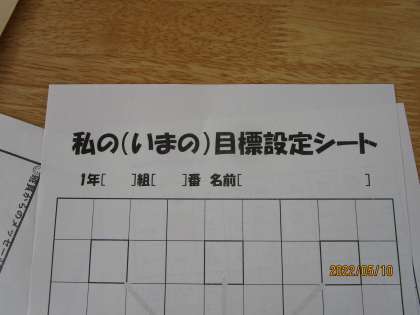 私の(いまの)目標設定シート
1年[ ]組[ ]番 名前[ ]
2022/05/10